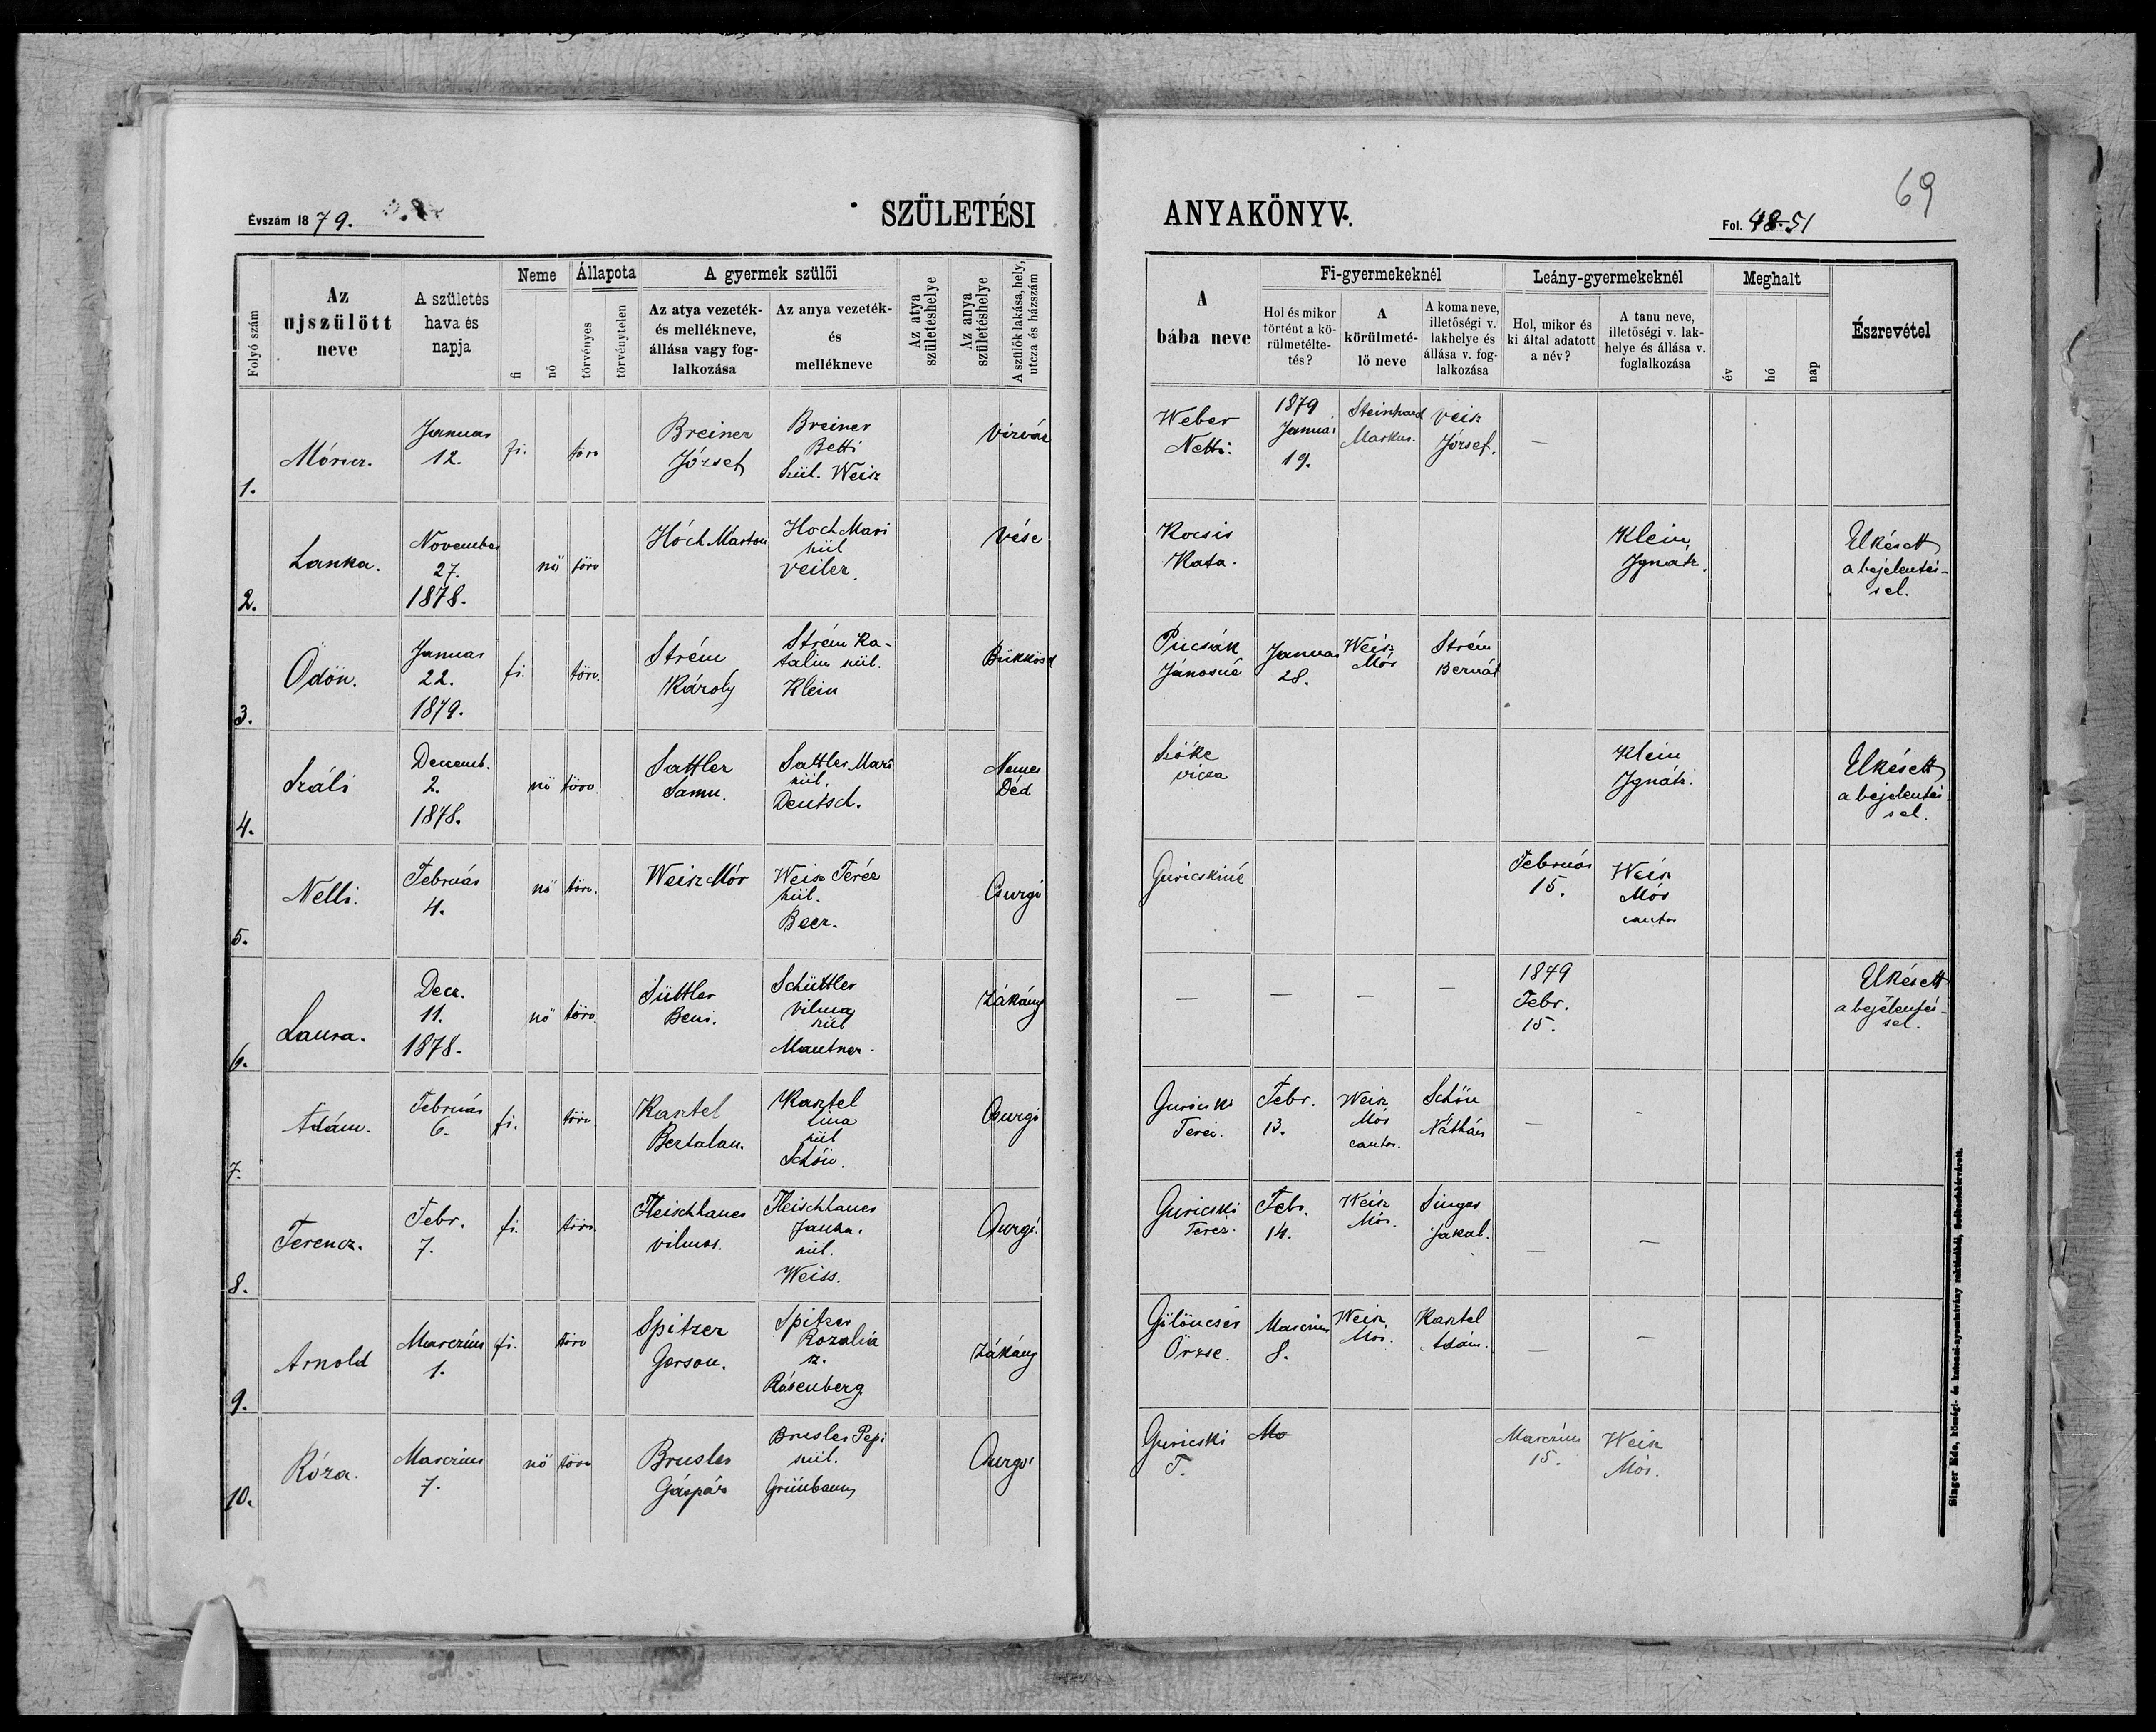 69
Évszám 1879.
SZÜLETÉSI
ANYAKÖNYV.
Fol. 48-51
Folyó szám
Az ujszülött neve
A születés hava és napja
Neme
fi
nő
Állapota
törvényes
törvénytelen
A gyermek szülői
Az atya vezeték- és mellékneve, állása vagy foglalkozása
Az anya vezeték- és mellékneve
Az atya születéshelye
Az anya születéshelye
A szülők lakása, hely, utcza és házszám
A bába neve
Fi-gyermekeknél
Hol és mikor történt a körülmetéltetés?
A körülmetélő neve
A koma neve, illetőségi v. lakhelye és állása v. foglalkozása
Leány-gyermekeknél
Hol, mikor és ki által adatott a név?
A tanu neve, illetőségi v. lakhelye és állása v. foglalkozása
Meghalt
év
hó
nap
Észrevétel
1. Móricz. Januar 12. fi. törv Breiner József Breiner Betti szül. Weisz Vizvár Weber Netti. 1879 Januar 19. Steinhard Markus. Veisz József. —
2. Lanka. November 27. 1878. nő törv Hóch Márton Hoch Mari szül Veiler. Vése Kocsis Kata. Klein Ignátz. Elkésett a bejelentéssel.
3. Ödön. Januar 22. 1879. fi. törv. Strém Károly Strém Katalin szül. Klein Bükkösd Pucsák Jánosné Januar 28. Weisz Mór Strém Bernát
4. Száli Decemb. 2. 1878. nő törv. Sattler Samu. Sattler Mari szül. Deutsch. Nemes Déd Szőke vicza Klein Ignátz. Elkésett a bejelentéssel.
5. Nelli. Február 4. nő törv. Weisz Mór Weisz Teréz szül. Beer. Csurgó Guricskiné Február 15. Weisz Mór cantor
6. Laura. Decz. 11. 1878. nő törv. Süttler Beni. Schüttler Vilma szül Mautner. Zákány — — — — 1879 Febr. 15. Elkésett a bejelentéssel.
7. Adám. Február 6. fi. törv. Kasztel Bertalan. Kasztel Lina szül Schön. Csurgó Guricski Teréz. Febr. 13. Weisz Mór cantor. Schön Náthán — -
8. Ferencz. Febr. 7. fi. törv. Fleischhauer Vilmos. Fleischhauer Janka. szül. Weiss. Csurgó. Guricski Teréz. Febr. 14. Weisz Mór. Singer Jakab. — —
9. Arnold Marczius 1. fi. törv Spitzer Gerson. Spitzer Rozalia sz. Rósenberg Zákány Gölöncsér Örzse. Marczius 8. Weisz Mór. Kasztel Adám. — —
10. Róza. Marczius 7. nő törv Brusler Gáspár Brusler Pepi szül. Grünbaum Csurgó Guricski T. Ma Marczius 15. Weisz Mór.
Singer Ede, községi- és katonai-nyomtatvány raktárából, Székesfehérvárott.